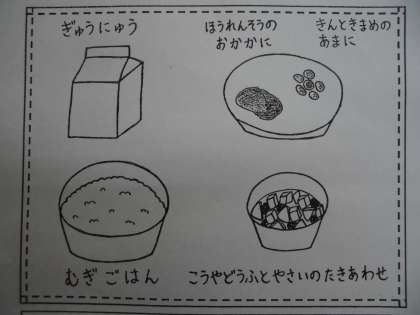 ぎゅうにゅう
ほうれんそうの
おかかに
きんときまめの
あまに
むぎごはん
こうやどうふとやさいのたきあわせ